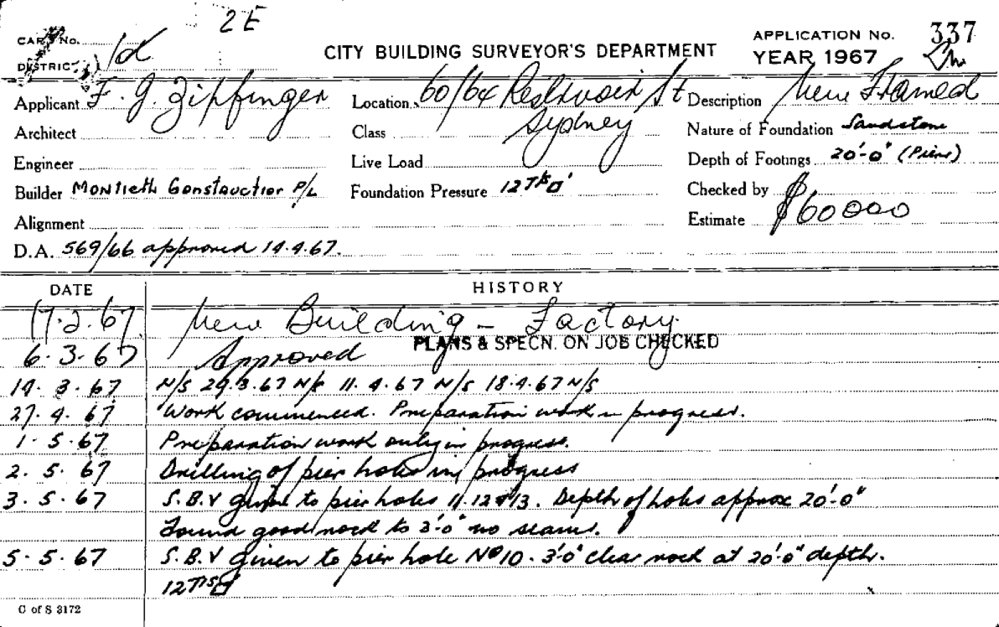 2E
CARD No.
DISTRICT 1d
CITY BUILDING SURVEYOR'S DEPARTMENT
APPLICATION No. 337
YEAR 1967
Applicant F. J. Zipfinger
Location 60/64 Reservoir St Sydney
Description New Framed
Architect
Class
Nature of Foundation Sandstone
Engineer
Live Load
Depth of Footings 20'-0" (Piers)
Builder Montieth Construction P/L
Foundation Pressure 12 Tns □'
Checked by
Alignment
Estimate $60000
D.A. 569/66 approved 14.4.67.
DATE HISTORY
17.2.67 New Building - Factory
PLANS & SPECN. ON JOB CHECKED
6.3.67 Approved
14.3.67 N/S 29.3.67 N/S 11.4.67 N/S 18.4.67 N/S
27.4.67 Work commenced. Preparation work in progress.
1.5.67 Preparation work only in progress.
2.5.67 Drilling of pier holes in progress
3.5.67 S.B.V given to pier holes 11.12 & 13. Depth of holes approx 20'-0"
Found good rock to 3'-0" no seams.
5.5.67 S.B.V given to pier hole No 10. 3'0" clear rock at 20'-0" depth.
12 Tns □'
C of S 3172